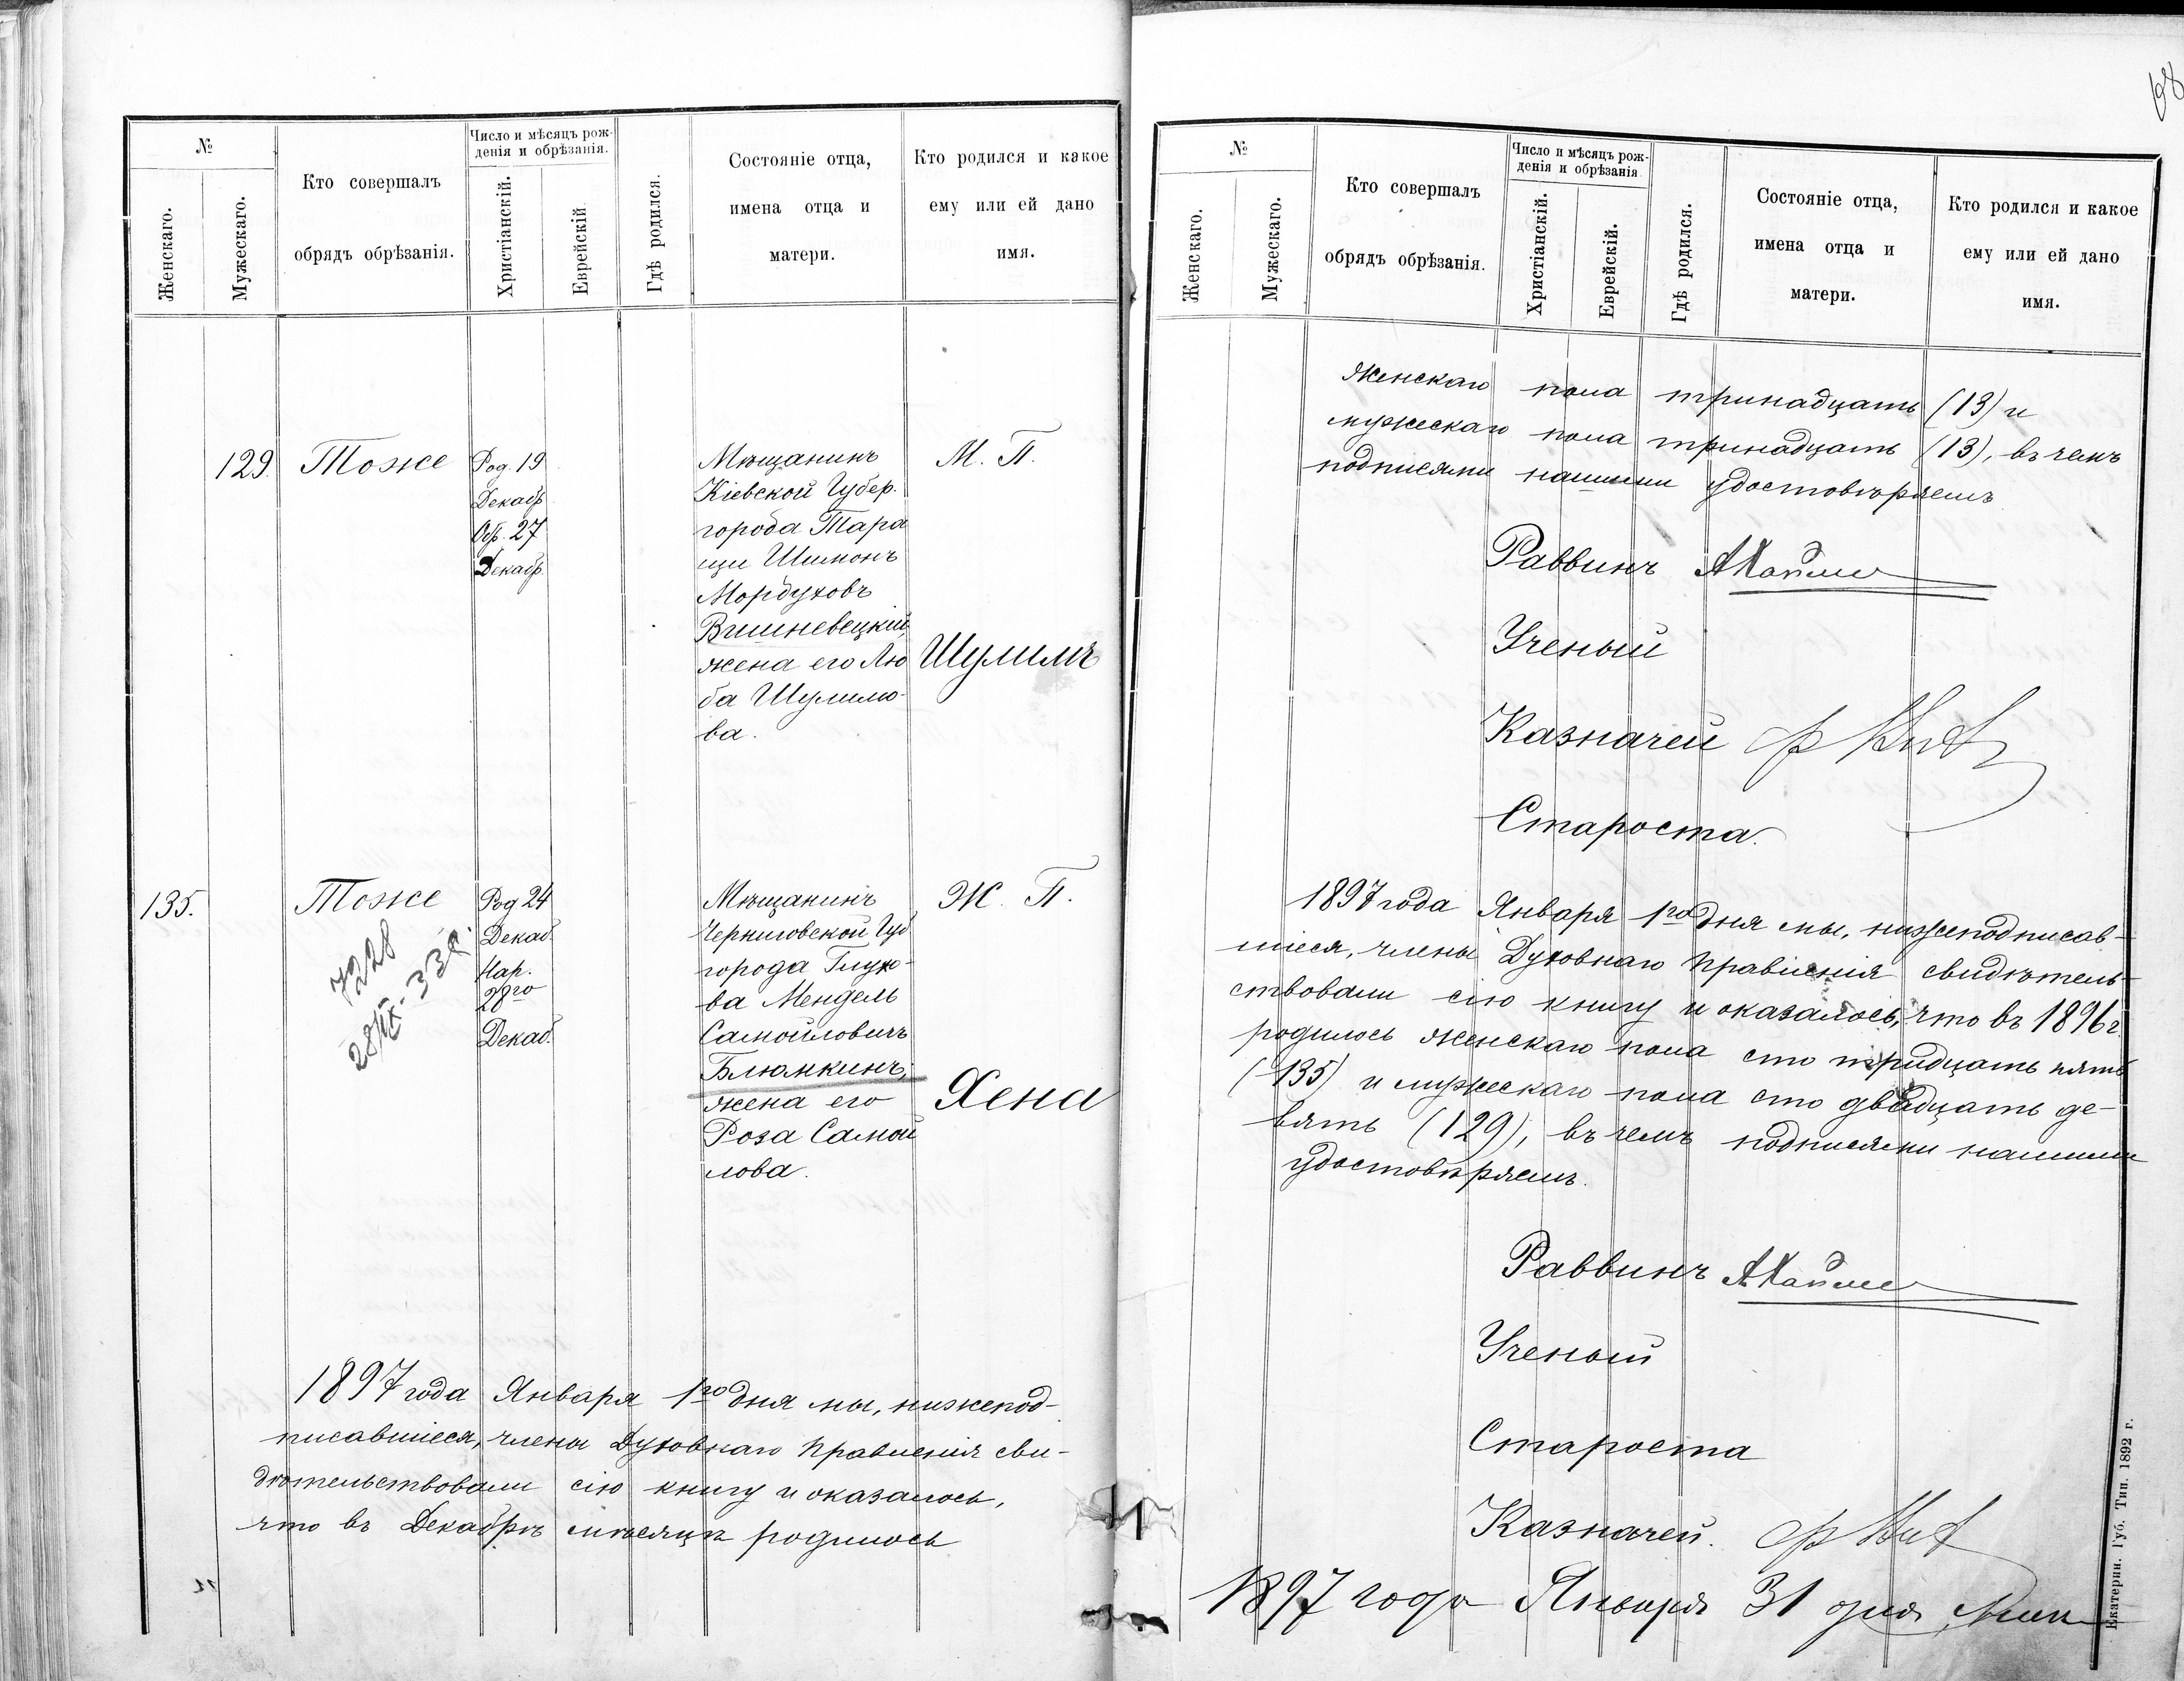 №
Женскаго.
Мужескаго.
Кто совершалъ
обрядъ обрѣзанія.
Число и мѣсяцъ рож-
денія и обрѣзанія.
Христіанскій.
Еврейскій.
Гдѣ родился.
Состояніе отца,
имена отца и
матери.
Кто родился и какое
ему или ей дано
имя.
129.
Тоже
Род. 19
Декабр
Обр. 27
Декабр.
Мѣщанинъ
Кіевской Губер.
города Тара
щи Шимонъ
Мордуховъ
Вишневецкій,
жена его Лю
ба Шулимо-
ва.
М. П.
Шулимъ
135.
Тоже
7228
28/IX-33г.
Род 24
Декаб.
Нар.
28го
Декаб.
Мѣщанинъ
Черниговской Губ
города Глухо-
ва Мендель
Самойловичъ
Блюмкинъ,
жена его
Роза Самой
лова.
Ж. П.
Хена
1897 года Января 1го дня мы, нижепод-
писавшіеся, члены Духовнаго Правленія сви-
дѣтельствовали сію книгу и оказалось,
что въ Декабрѣ мѣсяцѣ родилось
№
Женскаго.
Мужескаго.
Кто совершалъ
обрядъ обрѣзанія.
Число и мѣсяцъ рож-
денія и обрѣзанія.
Христіанскій.
Еврейскій.
Гдѣ родился.
Состояніе отца,
имена отца и
матери.
Кто родился и какое
ему или ей дано
имя.
женскаго пола тринадцать (13) и
мужескаго пола тринадцать (13), въ чемъ
подписями нашими удостовѣряемъ
Раввинъ
Ученый
Казначей
Староста.
1897 года Января 1го дня мы, нижеподписав-
шіеся, члены Духовнаго Правленія свидѣтель-
ствовали сію книгу и оказалось, что въ 1896 г.
родилось женскаго пола сто тридцать пять
(135) и мужескаго пола сто двадцать де-
вять (129), въ чемъ подписями нашими
удостовѣряемъ.
Раввинъ
Ученый
Староста
Казначей.
1897 года Января 31 дня,
Екатерин. Губ. Тип. 1892 г.